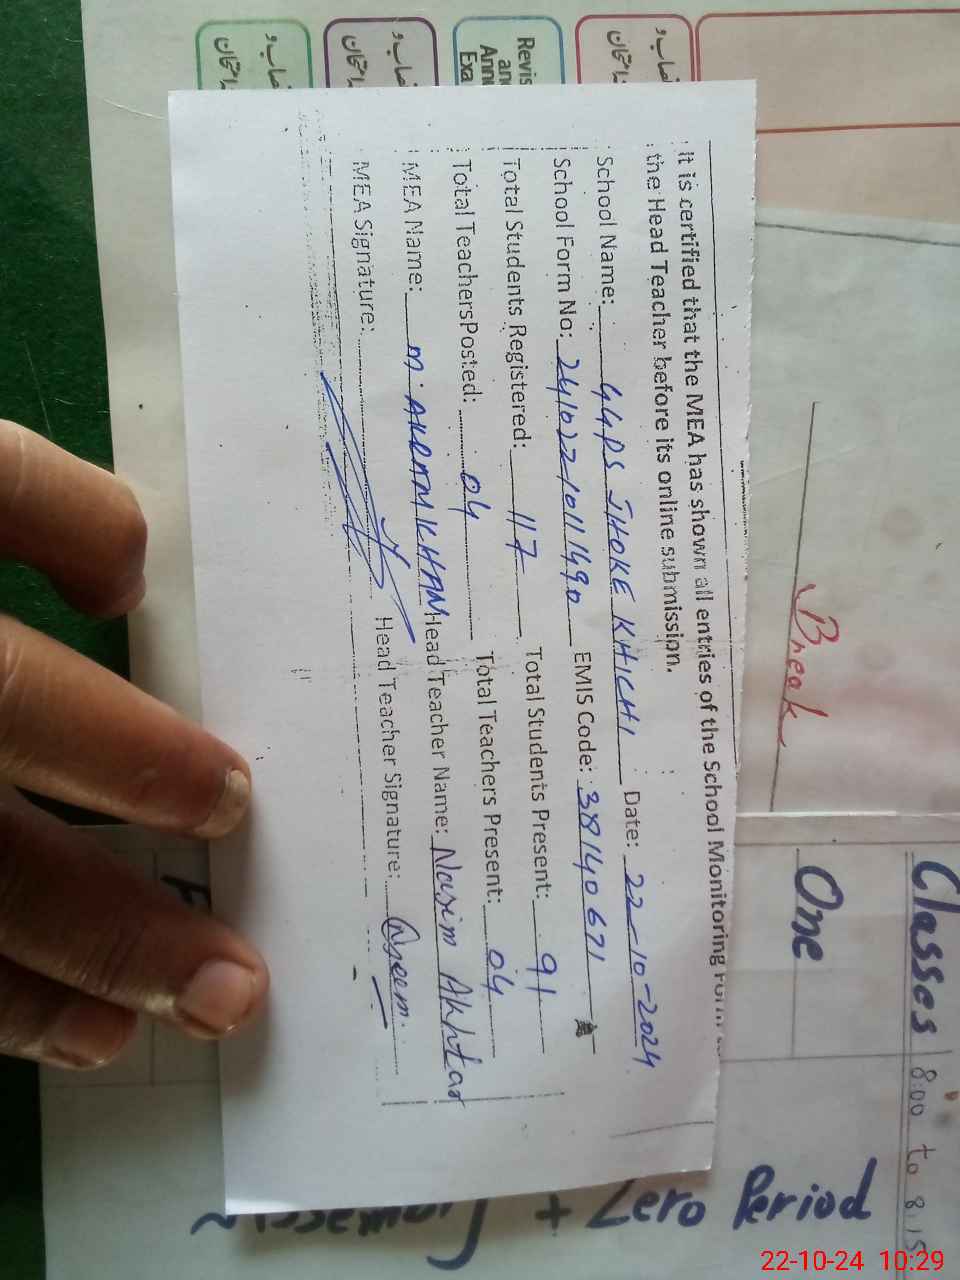 It is certified that the MEA has shown all entries of the School Monitoring Form to
the Head Teacher before its online submission.
School Name: GGPS JHOKE KHICHI Date: 22-10-2024
School Form No: 2410221011490 EMIS Code: 38140671
Total Students Registered: 117 Total Students Present: 91
Total TeachersPosted: 04 Total Teachers Present: 04
MEA Name: M. AKRAM KHAN Head Teacher Name: Nasim Akhtar
MEA Signature: Head Teacher Signature: Naseem
Revis
an
Ann
Exa
Break
Classes 8:00 to 8.15
One
Zero Period
+
22-10-24 10:29